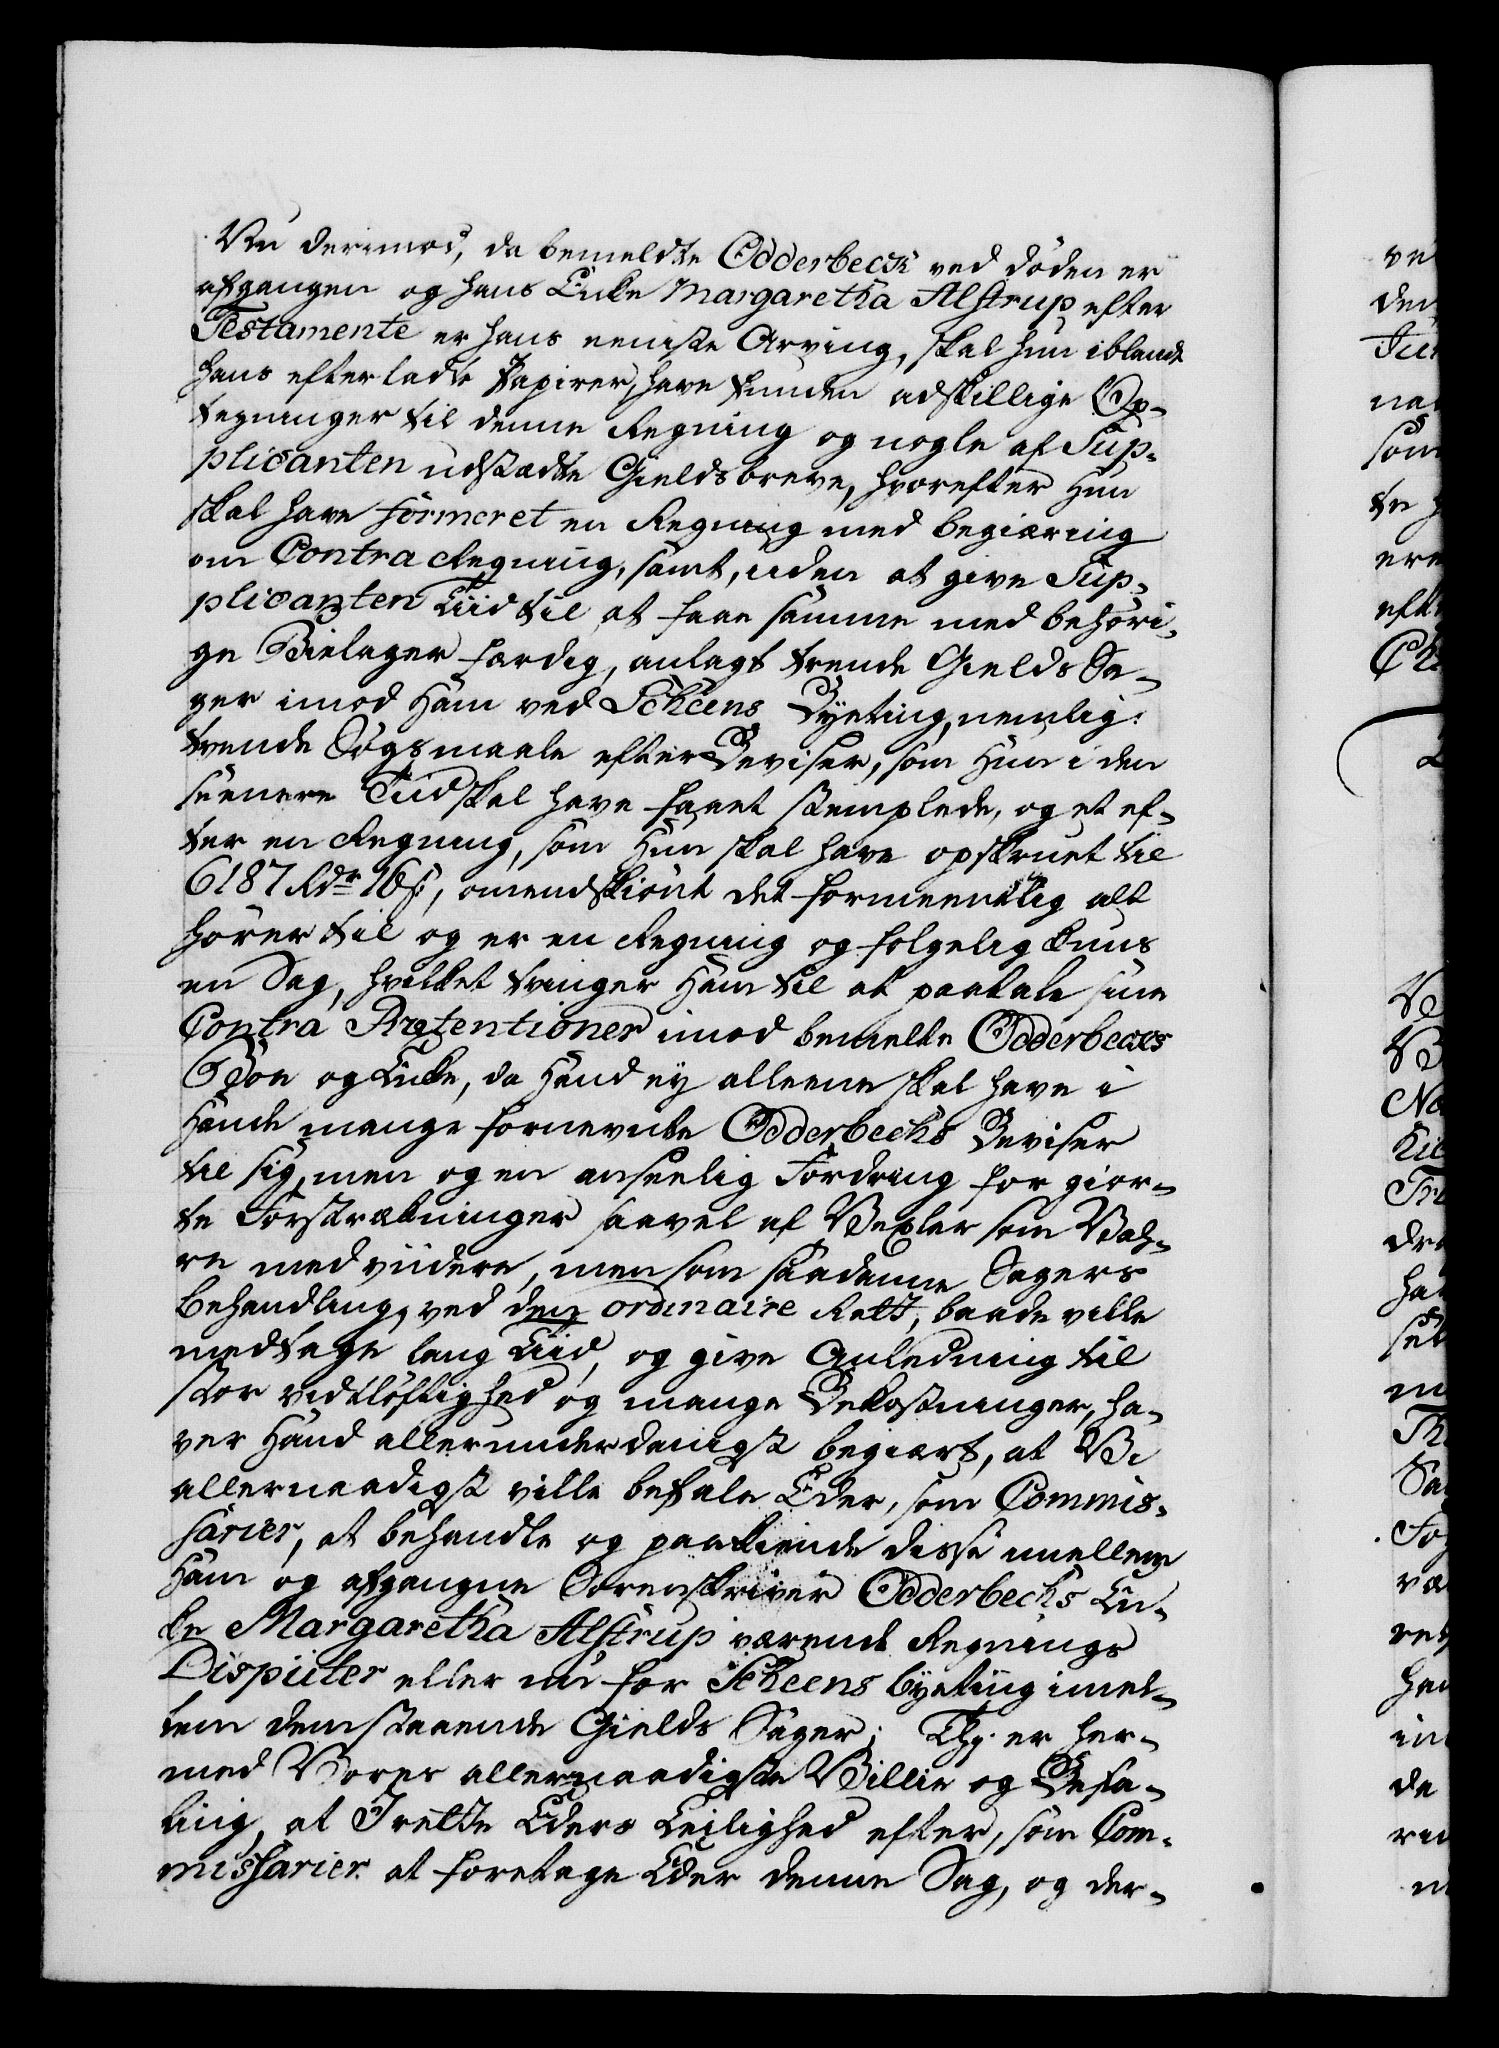 Nu derimod, da bemeldte Odderbeck ved döden er
afgangen og hans Encke Margaretha Alstrup efter
Testamente er hans eeniste Arving, skal hun iblandt
hans efterladte Papirer, have funden adskillige Op-
tegninger til denne Regning og nogle af Sup-
plicanten udstædte Gieldsbreve, hvorefter Hun
skal have formeret en Regning med begiæring
om Contra Regning, samt, uden at give Sup-
plicanten Tiid til at faae samme med behöri-
ge Bielager færdig, anlagt trende Gields Sa-
ger imod Ham ved Scheens Byeting, nemlig:
tvende Sögsmaale efter Beviser, som Hun i den
siienere Tiid skal have faaet stemplede, og et ef-
ter en Regning, som Hun skal have opskruet til
6187 Rdr 16 s, omendskiönt det formeentlig alt
hörer til og er en Regning og fölgelig kuns
en Sag, hvilket tvinger Ham til at paatale sine
Contra Prætentioner imod bemelte Odderbecks
Boe og Encke, da Hand ey alleene skal have i
Hænde mange fornevnte Odderbecks Beviser
til sig, men og en anseelig Fordring for gior-
te Forstrækninger saavel af Vexler som Vah-
re med viidere, men som saadanne Sagers
behandling, ved den ordinaire Rett, baade ville
medtage lang Tiid, og give Anledning til
stor vidtlöftighed og mange Bekostninger, ha-
ver Hand allerunderdanigst begiært, at Vi
allernaadigst ville befale Eder, som Commis-
sarier, at behandle og paakiende disse imellem
Ham og afgangne Sorenskriver Odderbecks En-
ke Margaretha Alstrup værende Regnings
Disputer eller nu for Scheens byeting imel-
lem dem staaende Gields Sager; Thj er her-
med Vores allernaadigste Villie og Befa-
ling, at I rette Eders Leilighed efter, som Com-
missarier at foretage Eder denne Sag, og der-